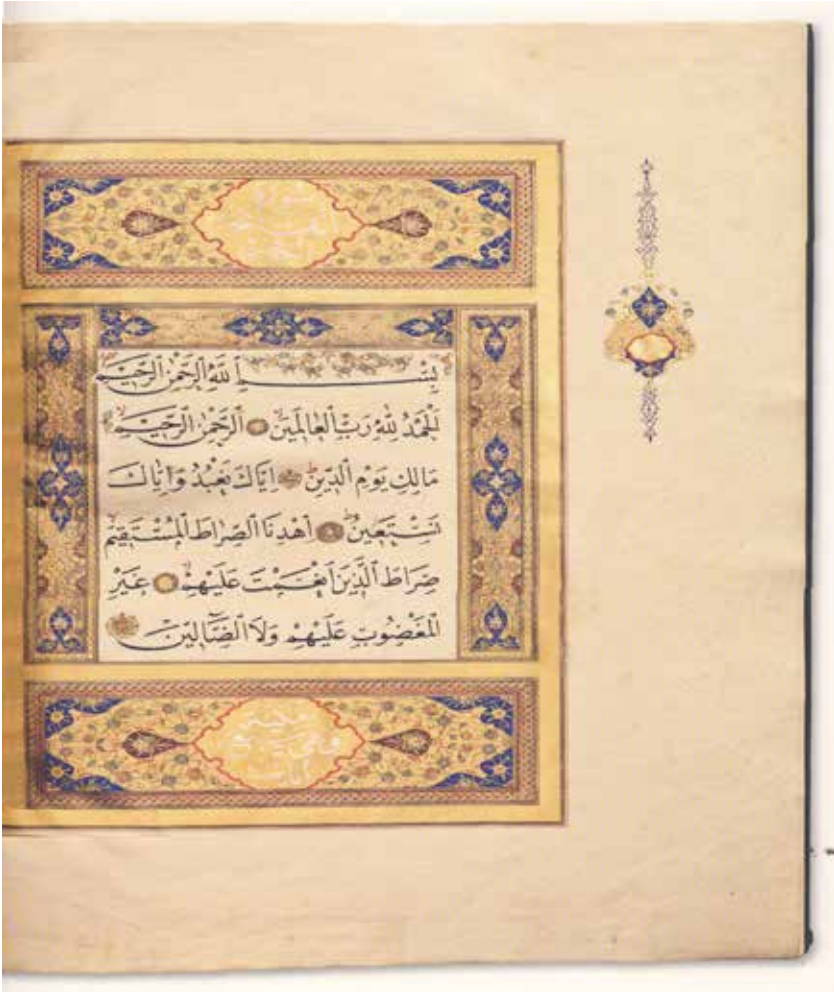 سورة
بِسْمِ اللّٰهِ الرَّحْمٰنِ الرَّحِيمِ
اَلْحَمْدُ لِلّٰهِ رَبِّ الْعَالَمِينَ الرَّحْمٰنِ الرَّحِيمِ
مَالِكِ يَوْمِ الدِّينِ اِيَّاكَ نَعْبُدُ وَاِيَّاكَ
نَسْتَعِينُ اهْدِنَا الصِّرَاطَ الْمُسْتَقِيمَ
صِرَاطَ الَّذِينَ اَنْعَمْتَ عَلَيْهِمْ غَيْرِ
الْمَغْضُوبِ عَلَيْهِمْ وَلَا الضَّالِّينَ